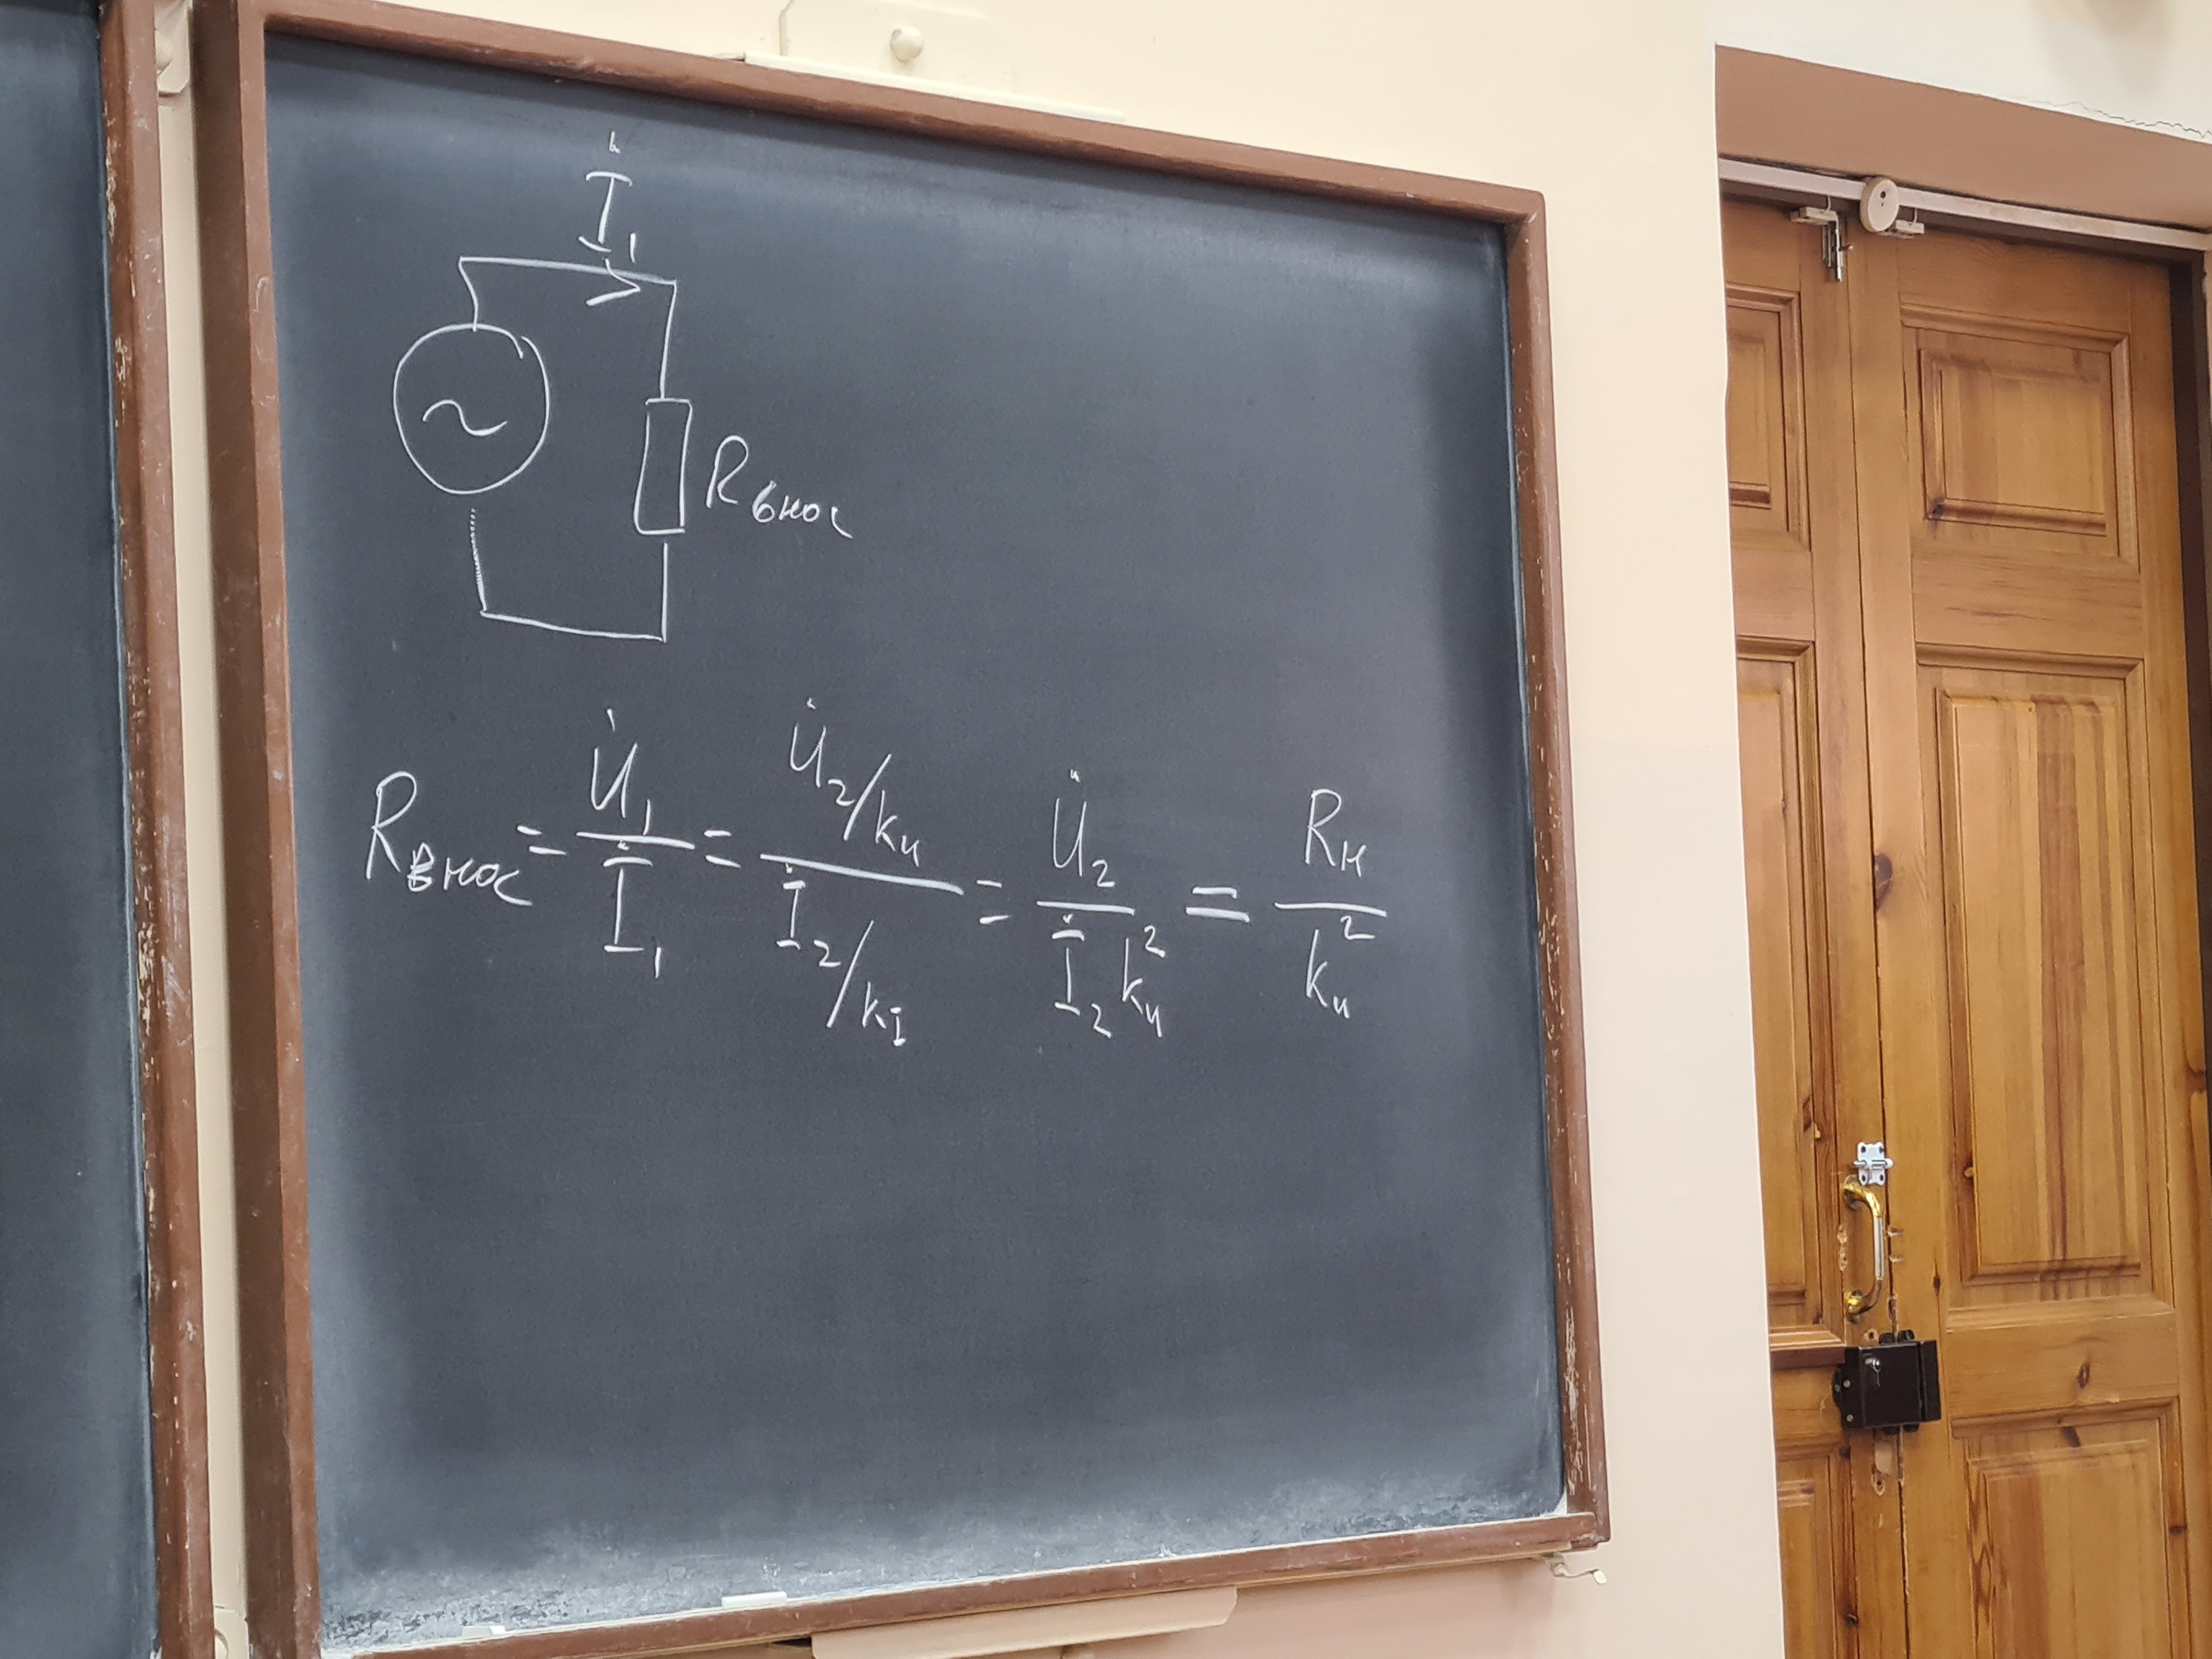 İ₁
~
Rвнос
Rвнос = U̇₁/İ₁ = (U̇₂/kᵤ)/(İ₂/k_I) = U̇₂/(İ₂kᵤ²) = Rн/kᵤ²